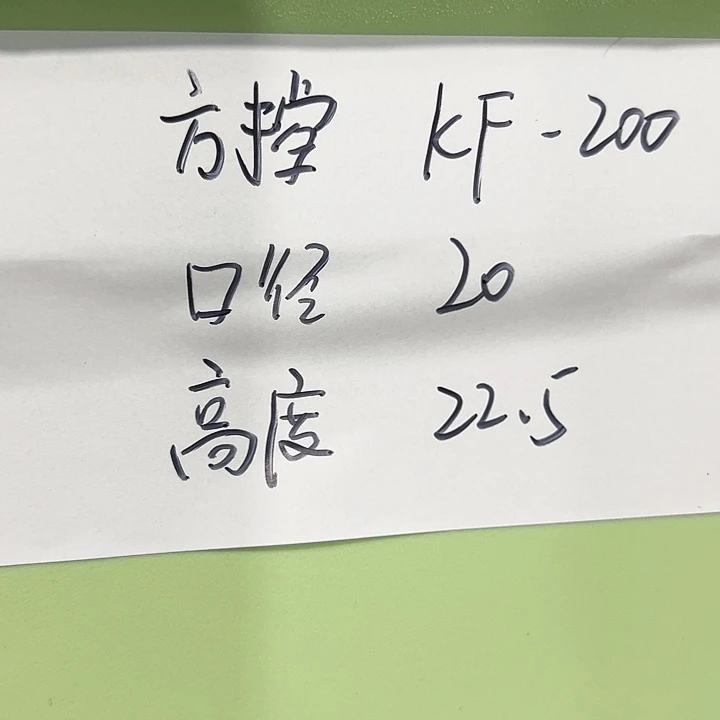 方控 KF-200
口径 20
高度 22.5